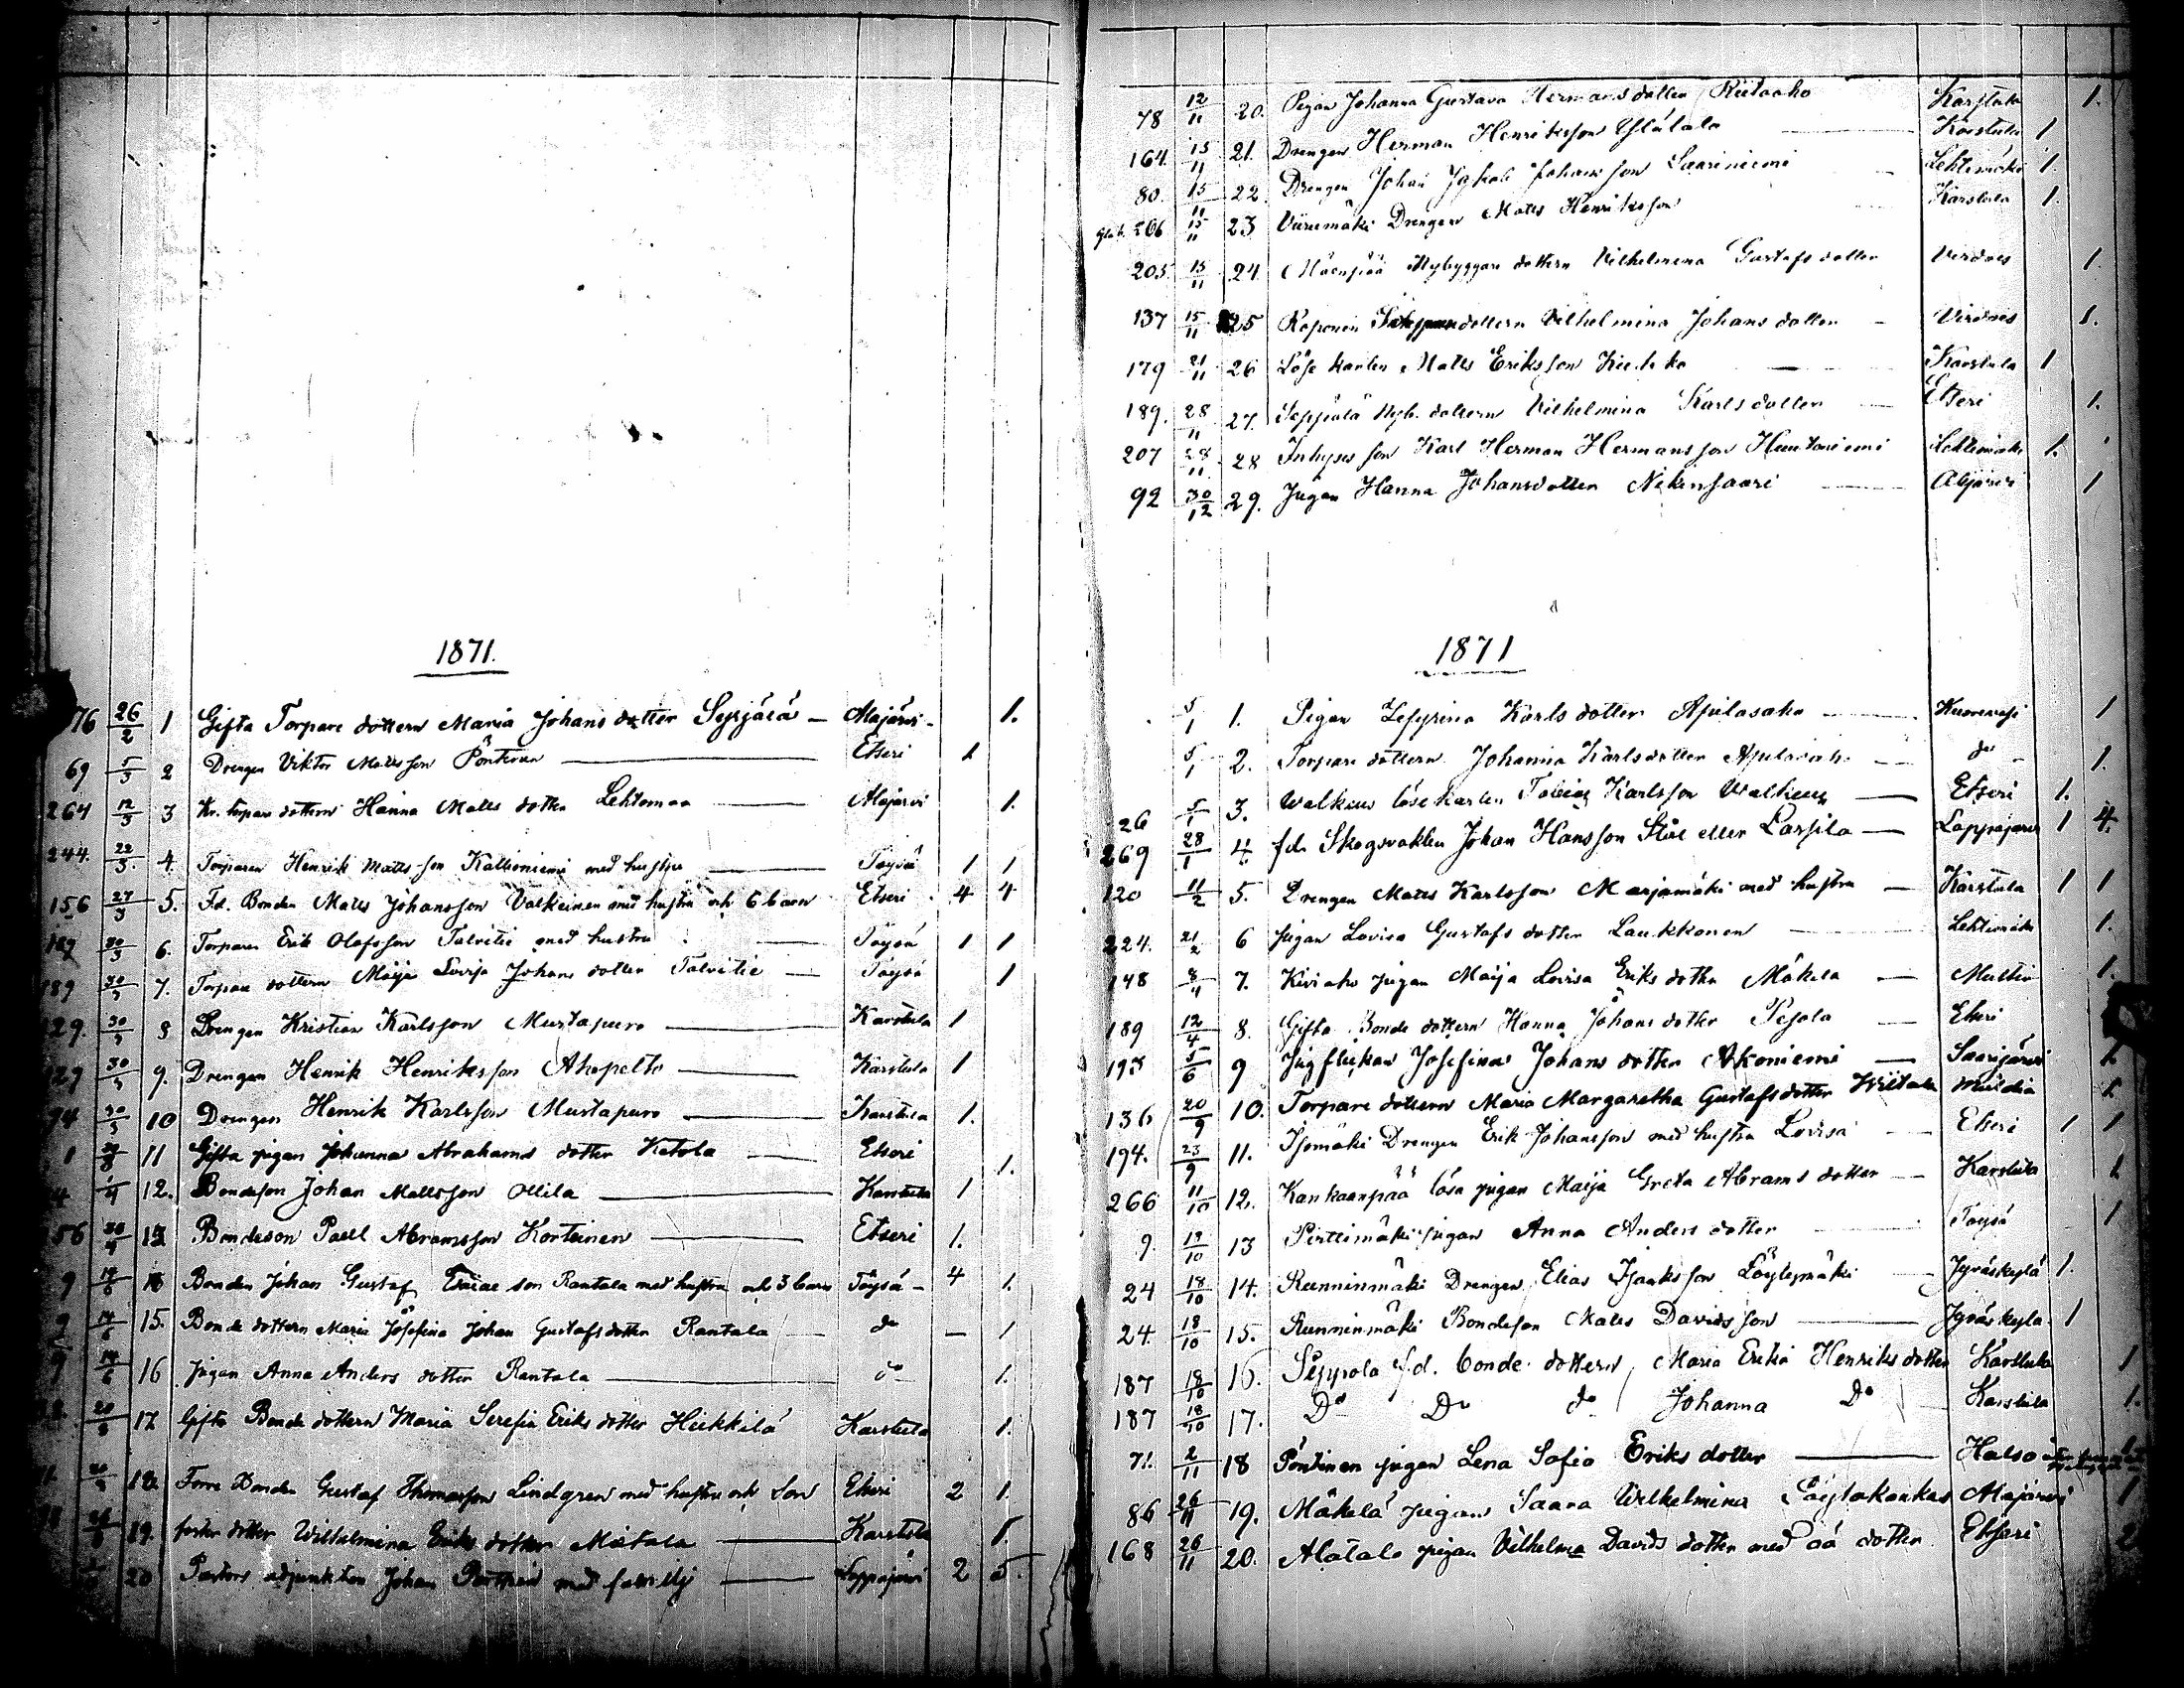 1871.
76 26/2 1 Gifta Torpare dottern Maria Johans dotter Syrjälä — Alajärvi — 1.
69 5/3 2 Drengen Viktor Matts son Pöntinen — Etseri 1
264 12/3 3 Kr. torpare dottern Hanna Matts dotter Lehtomaa — Alajärvi 1.
244. 22/3 4. Torparen Henrik Matts son Kallioniemi med hustru — Töysä 1 1
156 27/3 5. Fd. Bonden Matts Johansson Valkeinen med hustru och 6 barn Etseri 4 4
30/3 6. Torparen Erik Olofsson Talvitie med hustru — Töysä 1 1
189 30/3 7. Torpare dottern Maija Lovisa Johans dotter Talvitie — Töysä 1
129. 30/3 8 Drengen Kristian Karlsson Mustapuro — Karstula 1
129 30/3 9. Drengen Henrik Henriksson Ahopelto — Karstula 1
94 30/3 10 Drengen Henrik Karlsson Mustapuro — Karstula 1.
1 11 Gifta pigan Johanna Abrahams dotter Ketola — Etseri 1.
4 12. Bondeson Johan Mattsson Ollila — Karstula 1
56 30/4 13 Bondeson Paell Abramsson Korteinen — Etseri 1.
9 14/6 Bonden Johan Gustaf son Rantala med hustru och 3 barn Töysä — 4 1.
9 14/6 15. Bonde dottern Maria Josefina Johan Gustafs dotter Rantala — do — 1
9 14/6 16 Pigan Anna Anders dotter Rantala — do 1.
17 Gifta Bonde dottern Maria Serefia Eriks dotter Heikkilä Karstula 1.
18. Forre Bonden Gustaf Thomasson Lindgren med hustru och Son Etseri 2 1.
19. dotter Wilhelmina Eriks dotter — Karstula 1.
20 Pastors adjunkten Johan med familj — Lappajärvi 2 5.
78 12/11 20. Pigan Johanna Gustava Hermans dotter Riitaaho Karstula 1.
164. 15/11 21. Drengen Herman Henriksson Ylätalo — Karstula 1
80. 15/11 22. Drengen Johan Jakob Johansson Saariniemi — Lehtimäki 1.
206 15/11 23 Viirumäki Drengen Matts Henriksson — Karstula 1.
205. 15/11 24. Mäenpää Nybyggare dottern Vilhelmina Gustafs dotter Virdois 1.
137 15/11 25 Koponen dottern Vilhelmina Johans dotter — Virdois 1.
179 21/11 26 Löse karlen Matts Eriksson — Karstula 1
189. 28/11 27. Seppälä Nyb. dottern Vilhelmina Karls dotter — Etseri 1.
207 28/11 28 Inhyses son Karl Herman Hermansson Lehtimäki 1.
92 30/12 29. Pigan Hanna Johansdotter — Alajärvi 1
1871
5/1 1. Pigan Zefyrina Karls dotter Apilasaho — 1
5/1 2. Torpare dottern Johanna Karlsdotter — do — 1.
26 5/1 3. Walkeus lösekarlen Tobias Karlsson — Etseri 1.
269 28/1 4. fd. Skogsvakten Johan Hansson Stol eller Lassila — Lappajärvi 1 4.
120 11/2 5. Drengen Matts Karlsson Marjamäki med hustru — Karstula 1 1
224. 21/2 6 Pigan Lovisa Gustafs dotter Laukkonen — Lehtimäki 1.
148 8/4 7. Kiviaho pigan Maija Lovisa Eriks dotter Mäkelä — Multia 1.
189 12/4 8. Gifta Bonde dottern Hanna Johans dotter Pesola — Etseri
5/6 9 Josefina Johans dotter Ahoniemi — Saarijärvi 1.
136 20/9 10. Torpare dottern Maria Margaretha Gustafs dotter Multia 1
194. 23/9 11. Isomäki Drengen Erik Johansson med hustru Lovisa — Etseri 1 1
266 11/10 12. Kankaanpää lösa pigan Maija Greta Abrams dotter — Karstula 1
9. 12/10 13 Pirttimäki pigan Anna Anders dotter — Töysä 1
24 18/10 14. Runninmäki Drengen Elias Isaksson Löytymäki — Jyväskylä 1.
24. 18/10 15. Runninmäki Bondeson Matts Davidsson — Jyväskylä. 1
187 18/10 16. Seppola fd. bonde dottern Maria Erika Henriks dotter Karstula 1
187 18/10 17. Do Do do Johanna Do — Karstula 1.
71. 2/11 18 Pöntinen pigan Lena Sofia Eriks dotter — Halso
86 26/11 19. Mäkelä pigan Saara Wilhelmina Alajärvi 1
168 26/11 20. Alatalo pigan Vilhelma Davids dotter med oä dotter Etseri 2